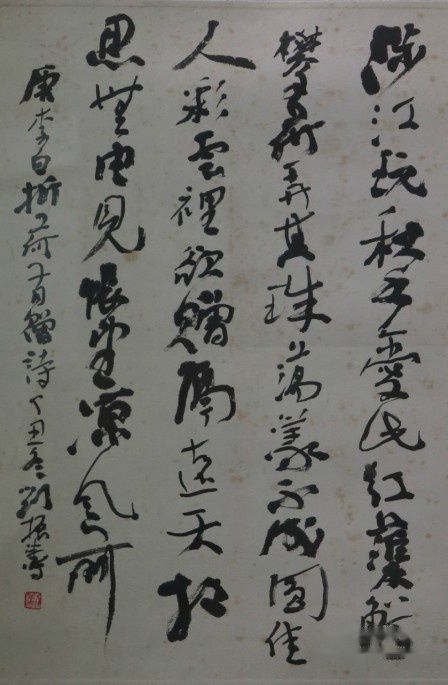 涉江玩秋水愛此紅蕖鮮
攀荷弄其珠蕩漾不成圓佳
人彩雲裡欲贈隔遠天相
思無因見悵望涼風前
唐李白折荷有贈詩丁丑冬劉振濤